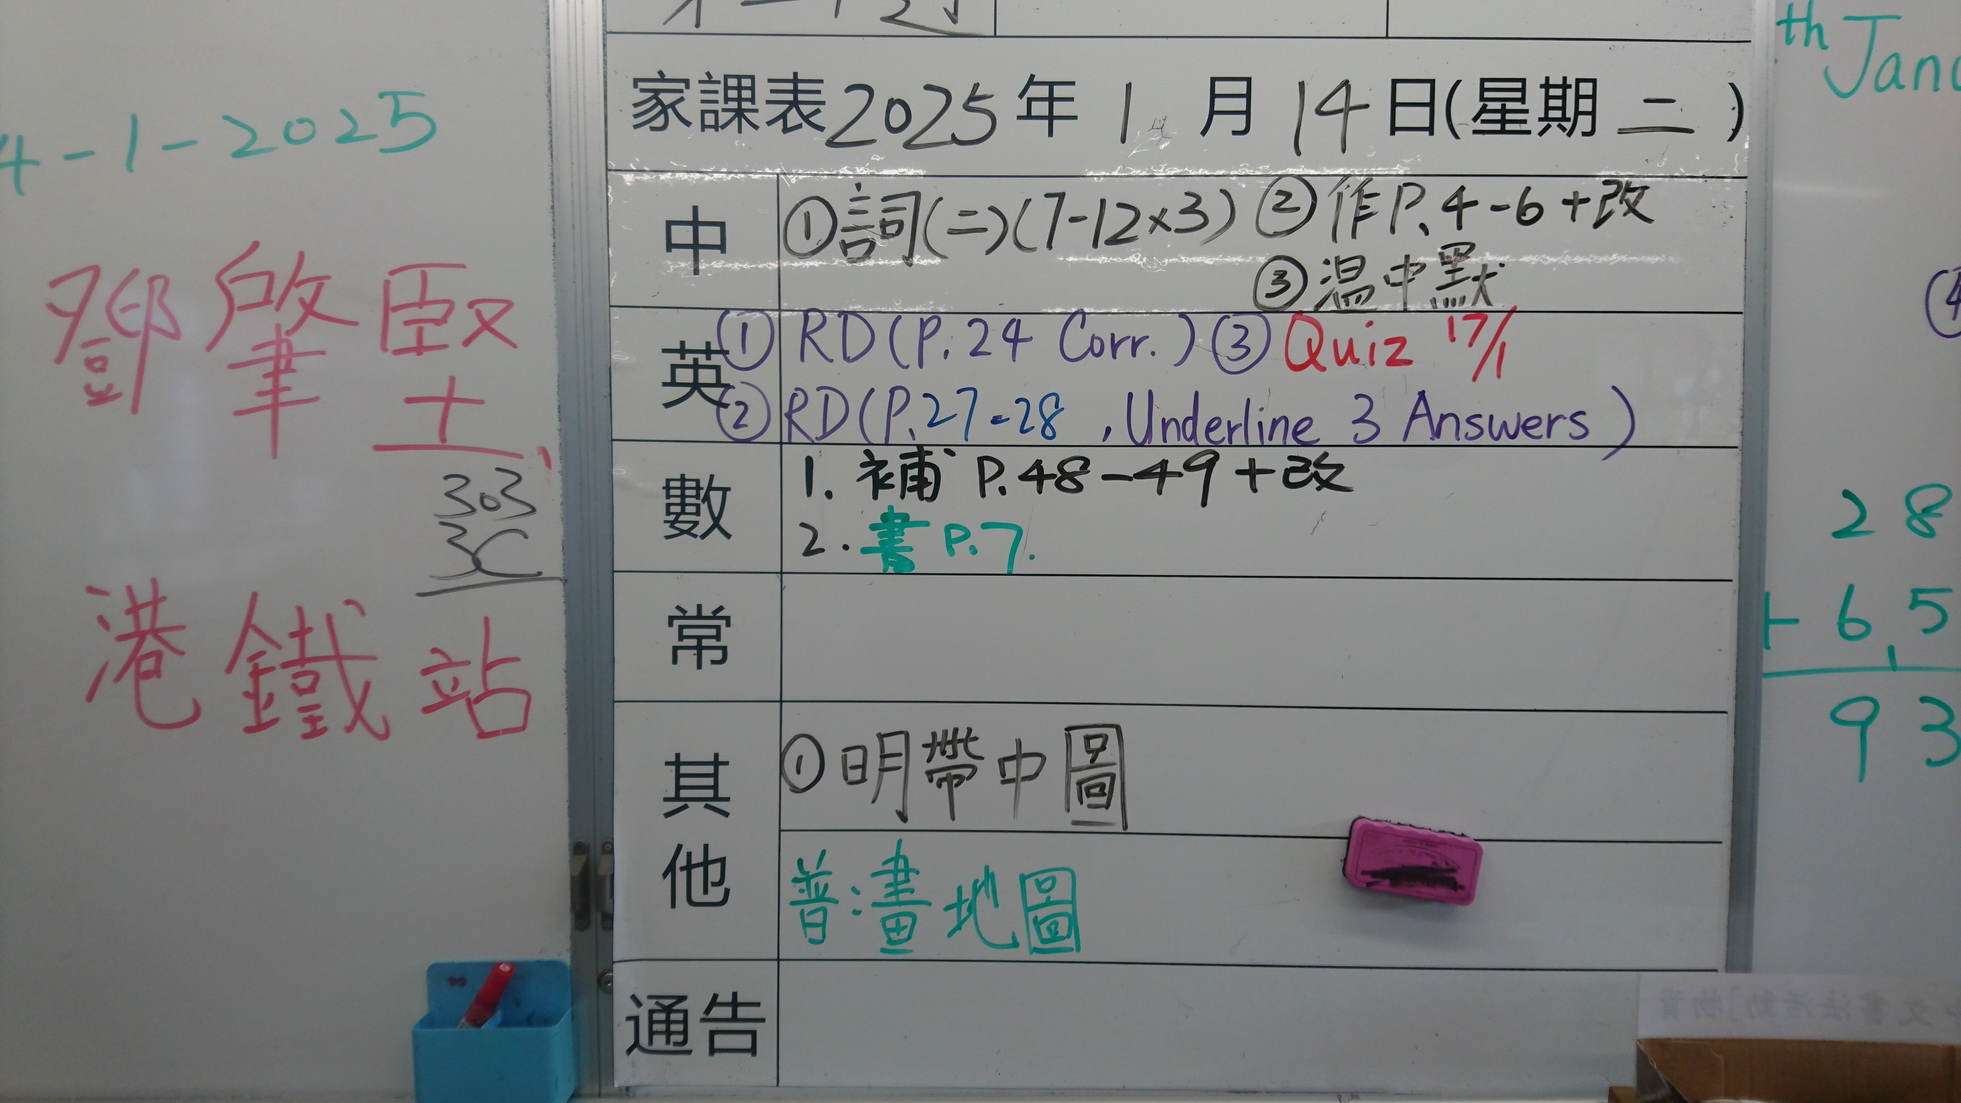 4-1-2025
鄧 肇 堅
303
3C
港 鐵 站
家課表2025年 1 月 14日(星期 二 )
中
①詞(二)(7-12×3) ②作P.4-6+改
③温中默
英
① RD(P.24 Corr.) ③Quiz 17/1
②RD(P.27-28 , Underline 3 Answers)
數
1. 補 P.48-49+改
2. 書 P.7.
常
其他
①明帶中圖
普:畫地圖
通告
th Janu
④
2 8
+ 6 5
9 3